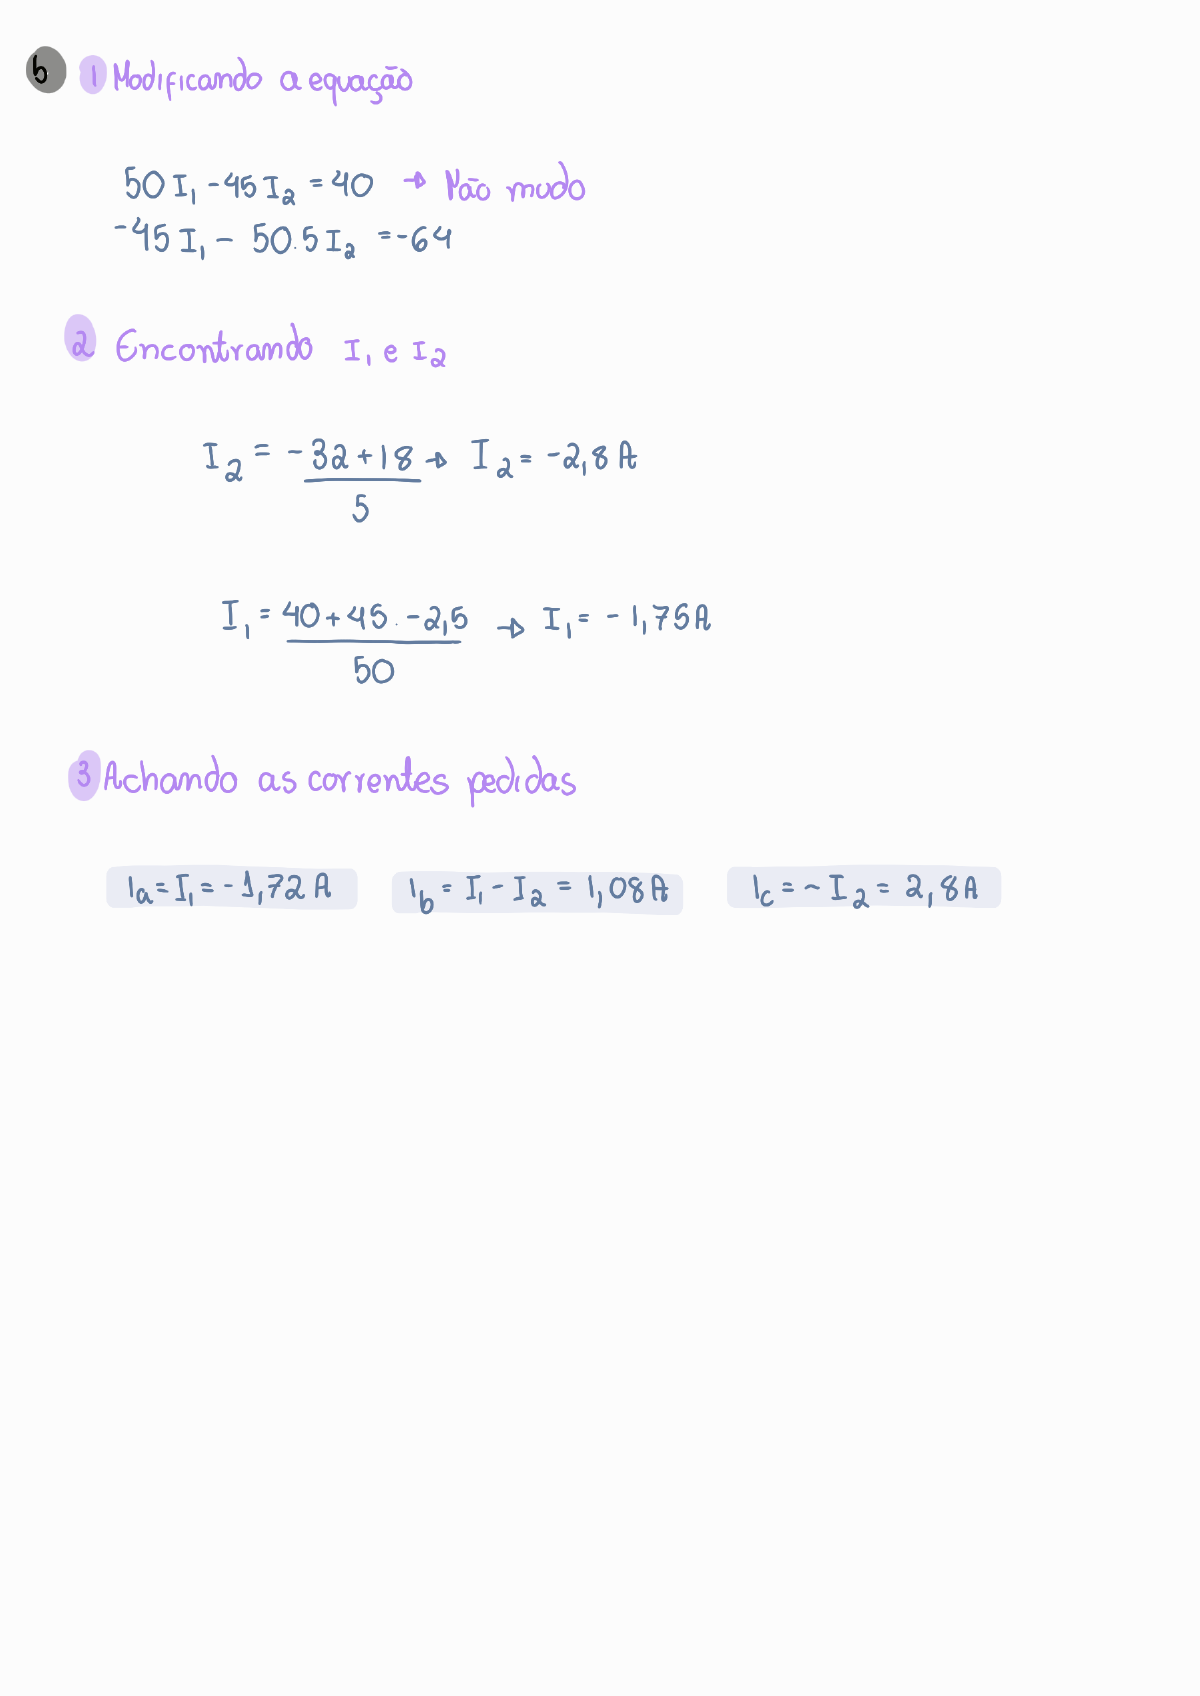 b 1 Modificando a equação
50 I₁ - 45 I₂ = 40 → Não mudo
-45 I₁ - 50.5 I₂ = -64
2 Encontrando I₁ e I₂
I₂ = -32+18 → I₂ = -2,8 A
5
I₁ = 40+45 . -2,5 → I₁ = -1,75A
50
3 Achando as correntes pedidas
ia = I₁ = -1,72 A ib = I₁ - I₂ = 1,08A ic = ~ I₂ = 2,8A